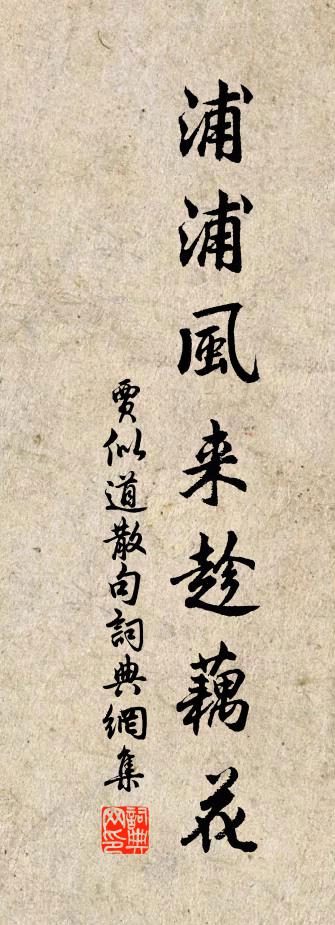 浦浦風来趁藕花
賈似道散句詞典網集
詞典網印